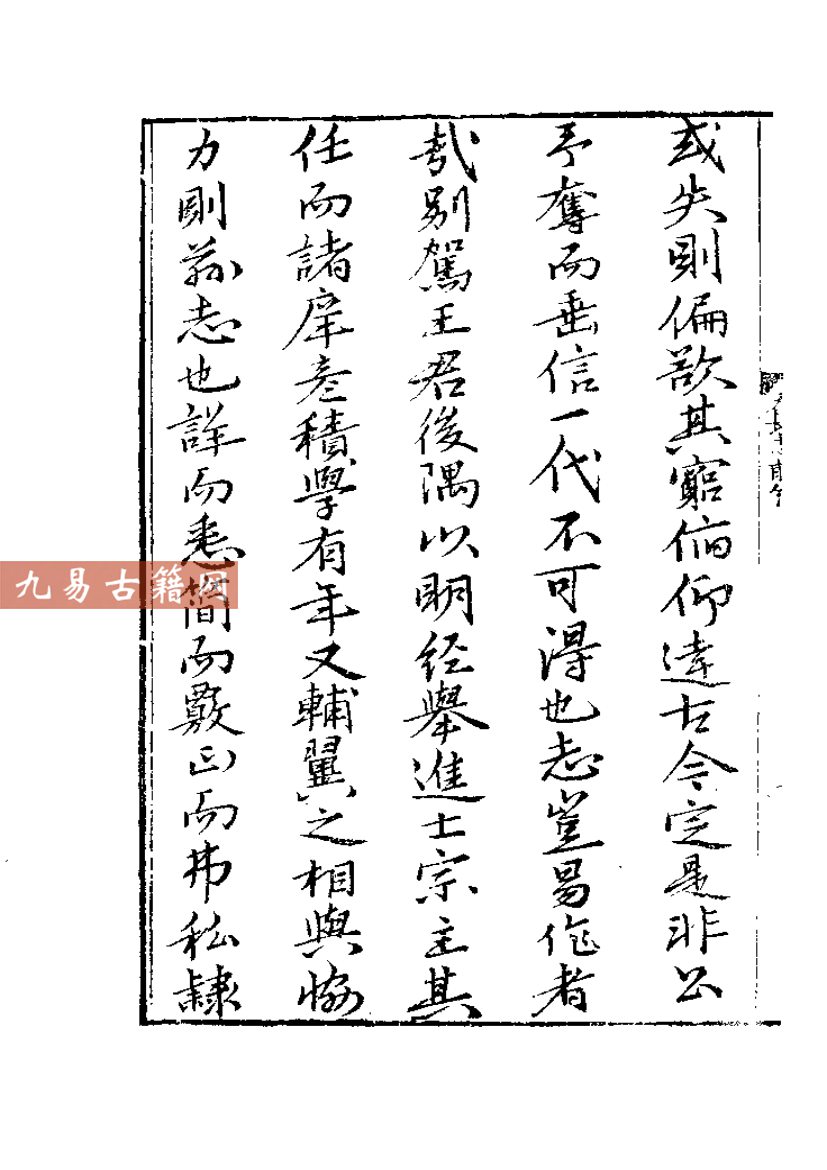 或失則偏欲其窮俯仰達古今定是非公
予奪而垂信一代不可得也志豈易作者
哉別駕王君後隅以明经舉進士宗主其
任而諸庠彥積學有年又輔翼之相與協
力則茲志也詳而悉簡而覈正而弗私隸
九易古籍网